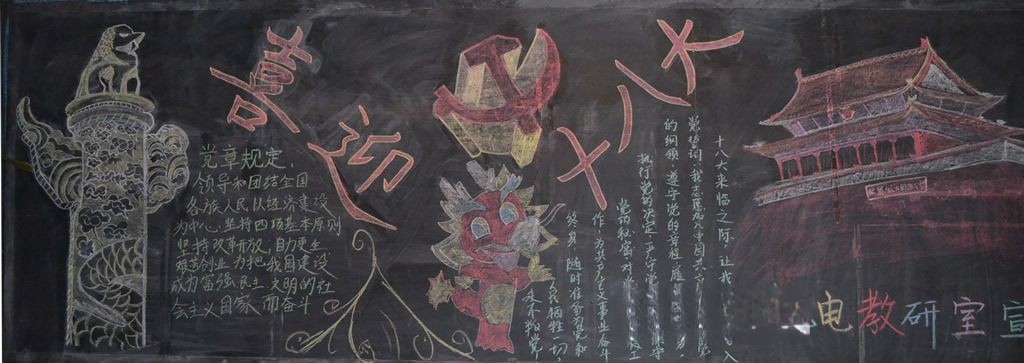 喜迎
十八大
党章规定，
领导和团结全国
各族人民以经济建设
为中心，坚持四项基本原则
坚持改革开放，自力更生
艰苦创业，为把我国建设
成为富强民主文明的社
会主义国家而奋斗
十八大来临之际，让我
入
党誓词：我志愿加入中国共
的纲领，遵守党的章程，履
执行党的决定，严守党
党的秘密，对
作，为共产主义事业奋斗
终身，随时准备为党和
人民牺牲一切
永不叛党
电教研室宣